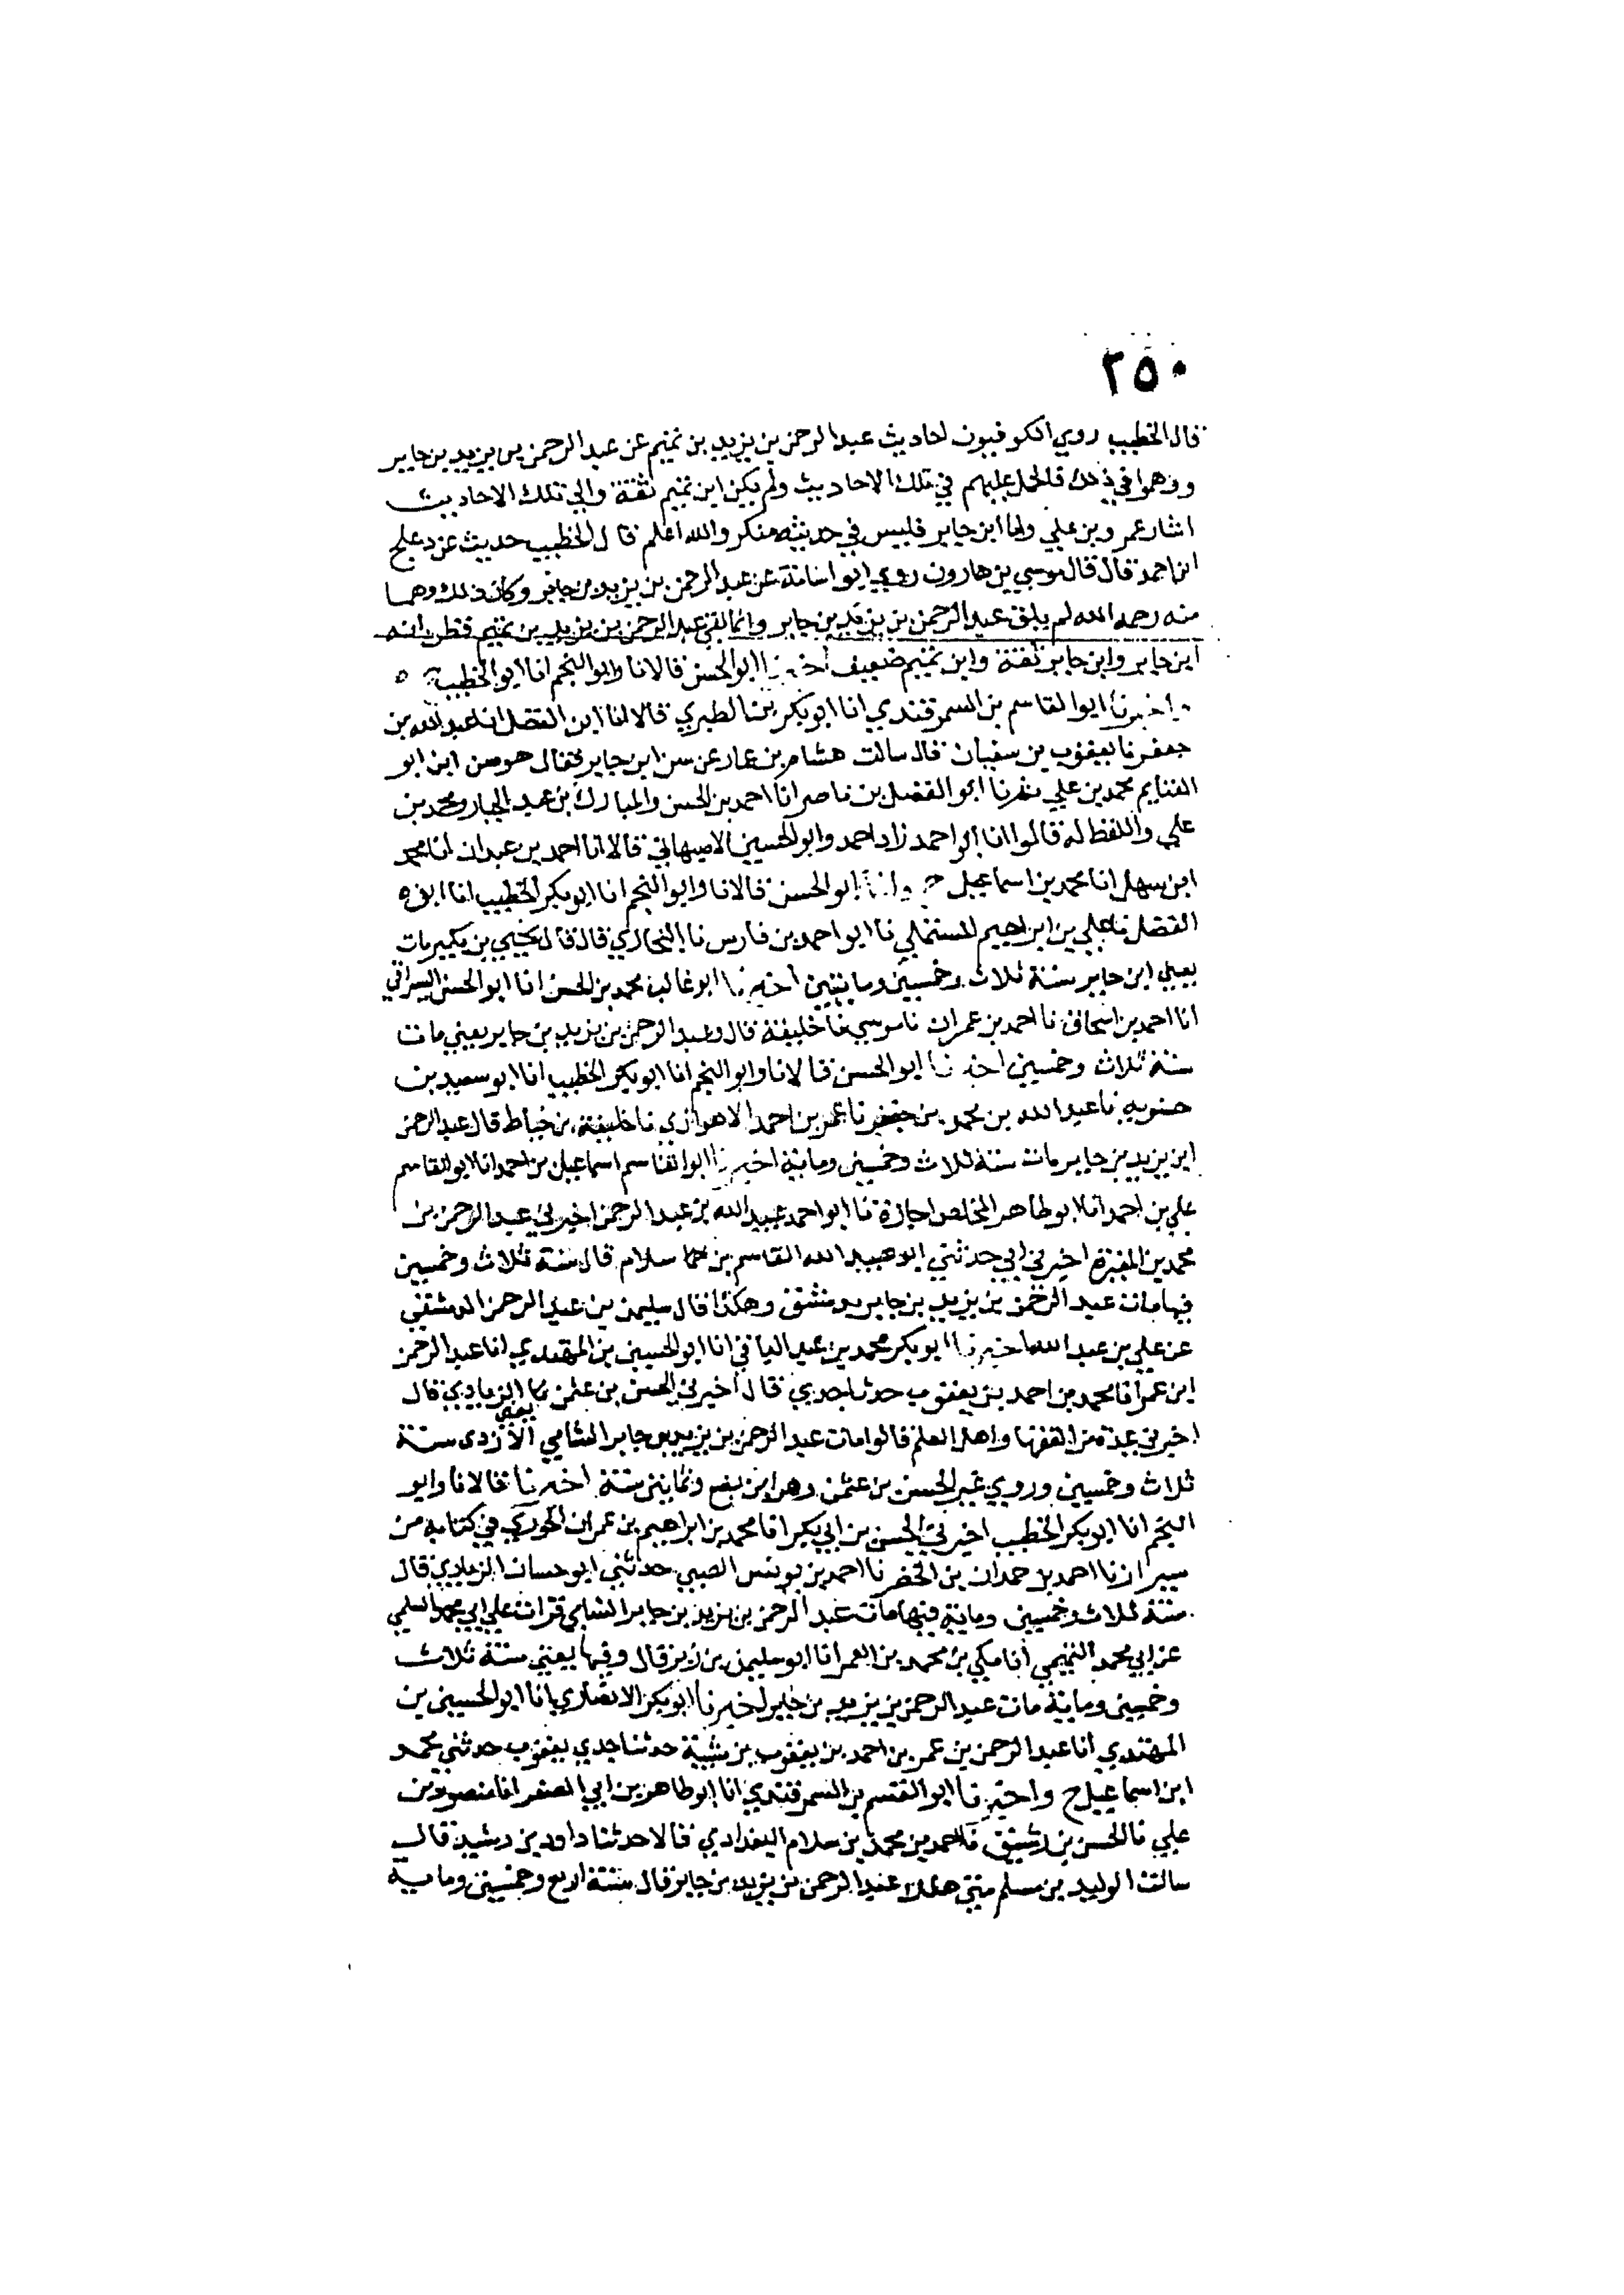 ٢٥٠
قال الخطيب روي الكوفيون احاديث عبد الرحمن بن يزيد بن تميم عن عبد الرحمن بن يزيد بن جابر
ووهموا في ذلك فالحمل عليهم في تلك الاحاديث ولم يكن ابن تميم ثقة والي تلك الاحاديث
اشار عمرو بن علي واما ابن جابر فليس في حديثه منكر والله اعلم قال الخطيب حديث عن دعلج
ابن احمد قال قال موسي بن هارون روي ابو اسامة عن عبد الرحمن بن يزيد بن جابر وكان ذلك وهما
منه رحمه الله لم يلق عبد الرحمن بن يزيد بن جابر وانما لقي عبد الرحمن بن يزيد بن تميم فظن انه
ابن جابر وابن جابر ثقة وابن تميم ضعيف اخبرنا ابو الحسن قالا نا وابو النجم انا ابو الخطيب
اخبرنا ابوا لقاسم بن السمرقندي انا ابو بكر بن الطبري قالا انا ابن الفضل انا عبد الله بن
جعفر نا يعقوب بن سفيان قال سالت هشام بن عمار عن سن ابن جابر فقال هو من ابن ابو
الغنايم محمد بن علي ابو الفضل بن ناصر انا احمد بن الحسن والمبارك بن عبد الجبار ومحمد بن
علي واللفظ له قالوا انا ابو احمد زاد احمد وابو الحسين الاصبهاني قالا انا احمد بن عبدان انا محمد
ابن سهل انا محمد بن اسماعيل ح وانا ابو الحسن قالا نا وابو النجم انا ابو بكر الخطيب انا ابن
الفضل نا علي بن ابراهيم المستملي نا ابو احمد بن فارس نا البخاري قال قال يحيي بن بكير مات
يعني ابن جابر سنة ثلاث وخمسين ومايتين اخبرنا ابو غالب محمد بن الحسن انا ابو الحسن السيرافي
انا احمد بن اسحاق نا احمد بن عمران نا موسي نا خليفة قال وعبد الرحمن بن يزيد بن جابر يعني مات
سنة ثلاث وخمسين اخبرنا ابو الحسن قالا نا وابو النجم انا ابو بكر الخطيب انا ابو سعيد بن
حسنويه نا عبد الله بن محمد بن جعفر نا عمر بن احمد الاهوازي نا خليفة بن خياط قال عبد الرحمن
ابن يزيد بن جابر مات سنة ثلاث وخمسين وماية اخبرنا ابوا لقاسم اسماعيل بن احمد انا ابو القاسم
علي بن احمد انا ابو طاهر المخلص اجازة نا ابو احمد عبيد الله بن عبد الرحمن اخبرني عبد الرحمن بن
محمد بن المغيرة اخبرني ابي حدثني ابو عبيد الله القاسم بن سلام قال سنة ثلاث وخمسين
فيها مات عبد الرحمن بن يزيد بن جابر بدمشق وهكذا قال سليمن بن عبد الرحمن الدمشقي
عن علي بن عبد الله اخبرنا ابو بكر محمد بن عبد الباقي انا ابو الحسين بن المهتدي انا عبد الرحمن
ابن عمر انا محمد بن احمد بن يعقوب حدثنا جدي قال اخبرني الحسن بن عثمن الزيادي قال
يعني
اخبرني عدة من الفقها واهل العلم قالوا مات عبد الرحمن بن يزيد بن جابر الشامي الازدي سنة
ثلاث وخمسين وروي غير الحسن بن عثمن وهو ابن بضع وثمانين سنة اخبرنا قالا نا وابو
النجم انا ابو بكر الخطيب اخبرني الحسن بن ابي بكر انا محمد بن ابراهيم بن عمران الجوري في كتابه من
شيراز نا احمد بن حمدان بن الخضر نا احمد بن يونس الضبي حدثني ابو حسان الزيادي قال
سنة ثلاث وخمسين وماية فيها مات عبد الرحمن بن يزيد بن جابر الشامي قرات علي ابي محمد السلمي
عن ابي محمد التميمي انا مكي بن محمد بن الغمر انا ابو سليمن بن زبر قال وفيها يعني سنة ثلاث
وخمسين وماية مات عبد الرحمن بن يزيد بن جابر اخبرنا ابو بكر الانصاري انا ابو الحسين بن
المهتدي انا عبد الرحمن بن عمر بن احمد بن يعقوب بن شيبة حدثنا جدي يعقوب حدثني محمد
ابن اسماعيل ح واخبرنا ابو القسم بن السمرقندي انا ابو طاهر بن ابي الصقر انا منصور بن
علي نا الحسن بن رشيق نا احمد بن محمد بن سلام البغدادي قالا حدثنا داود بن رشيد قال
سالت الوليد بن مسلم متي هلك عبد الرحمن بن يزيد بن جابر قال سنة اربع وخمسين وماية